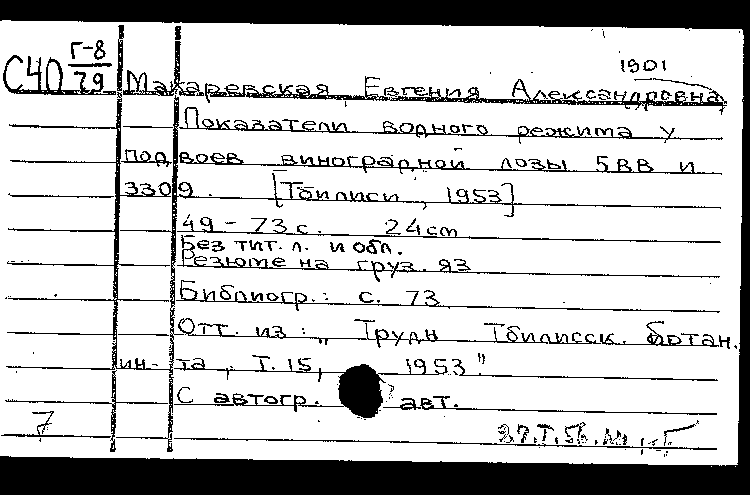 1901
С40 Г-8/79 Макаревская, Евгения Александровна
Показатели водного режима у
подвоев виноградной лозы 5ВВ и
3309. [Тбилиси, 1953]
49-73 с. 24 cm
Без тит. л. и обл.
Резюме на груз. яз
Библиогр.: с. 73
Отт. из: „Труды Тбилисск. ботан.
ин-та, Т. 15, 1953"
С автогр. авт.
7